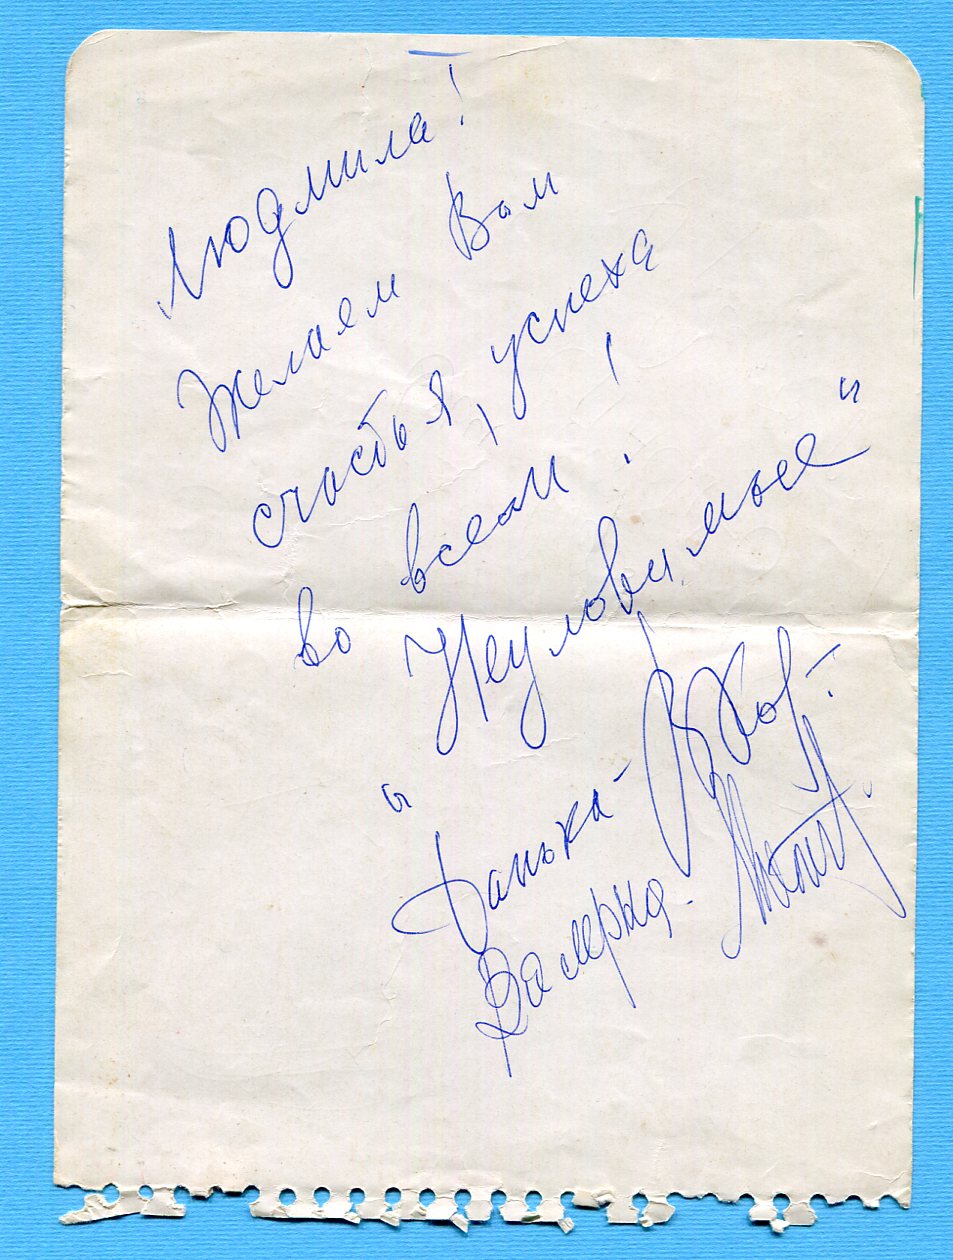 Людмила!
Желаем Вам
счастья, успеха
во всем!
"Неуловимые"
Данька -
Валерка -